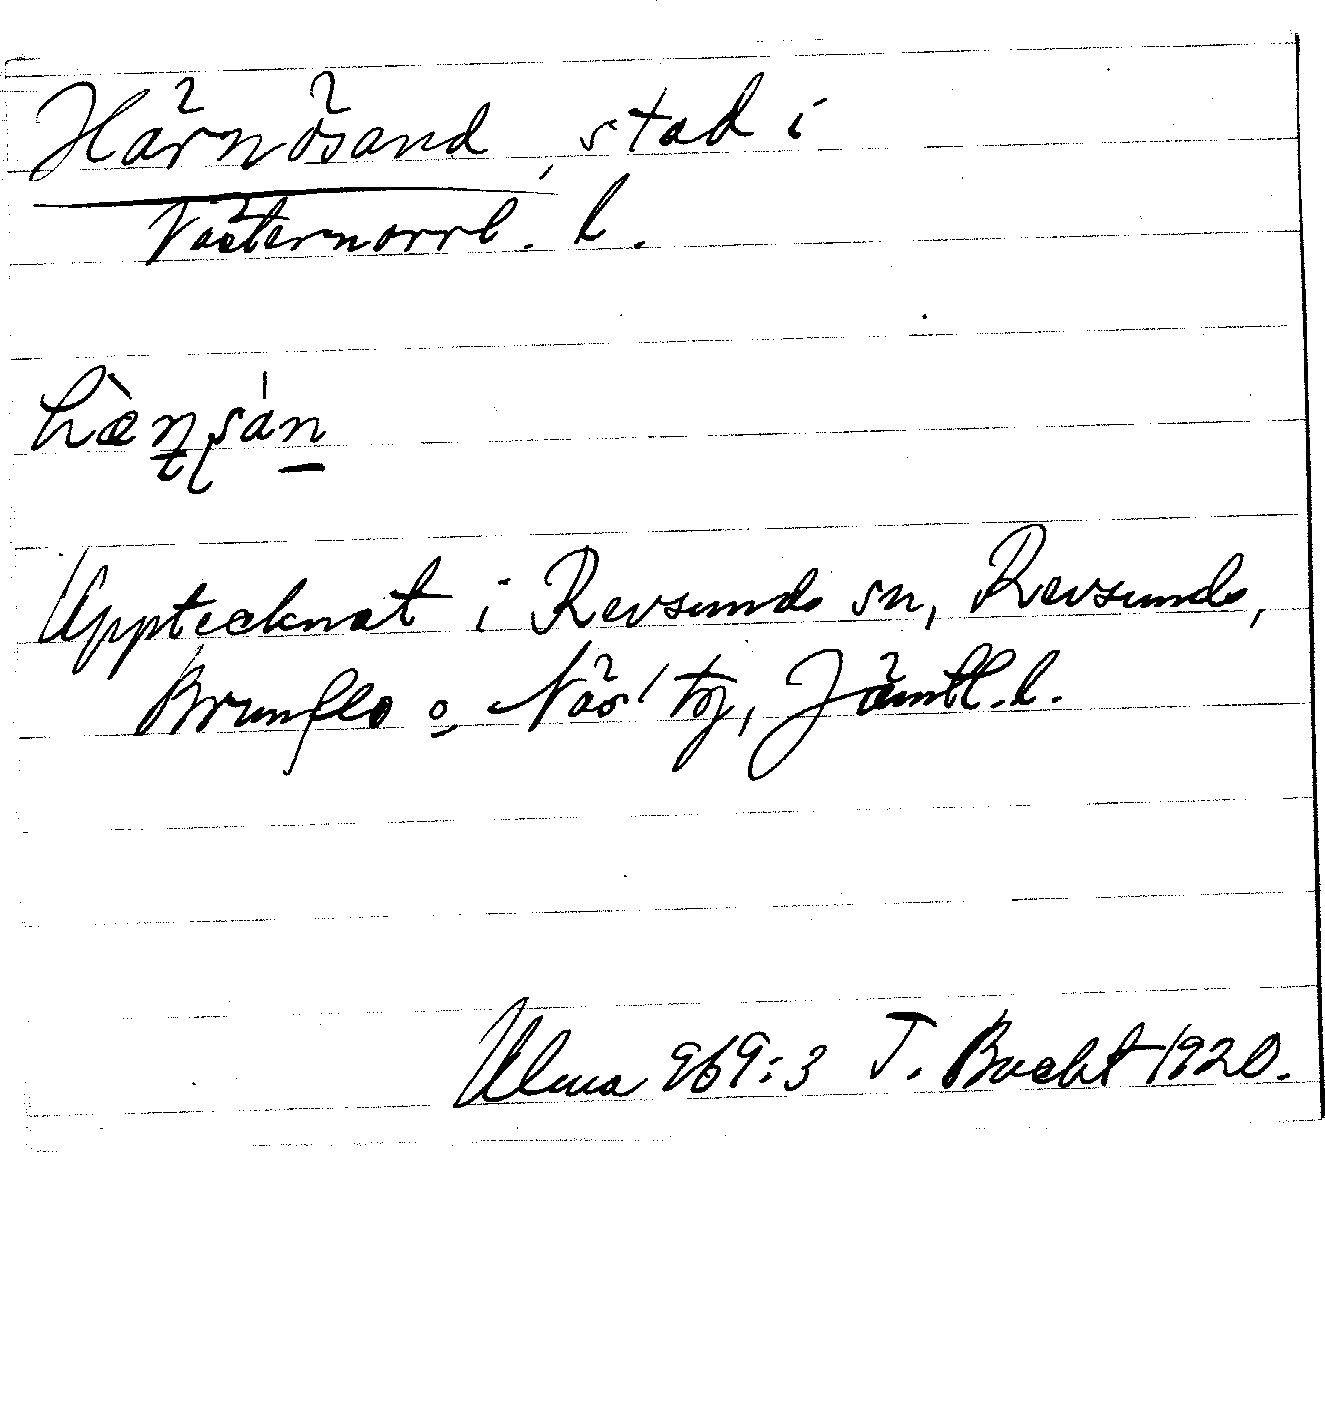 Härnösand, stad i
Västernorrl. l.
Upptecknat i Revsunds sn, Revsunds,
Brunflo o Näs' tg, Jämtl. l.
Ulma 969:3 T. Bucht 1920.